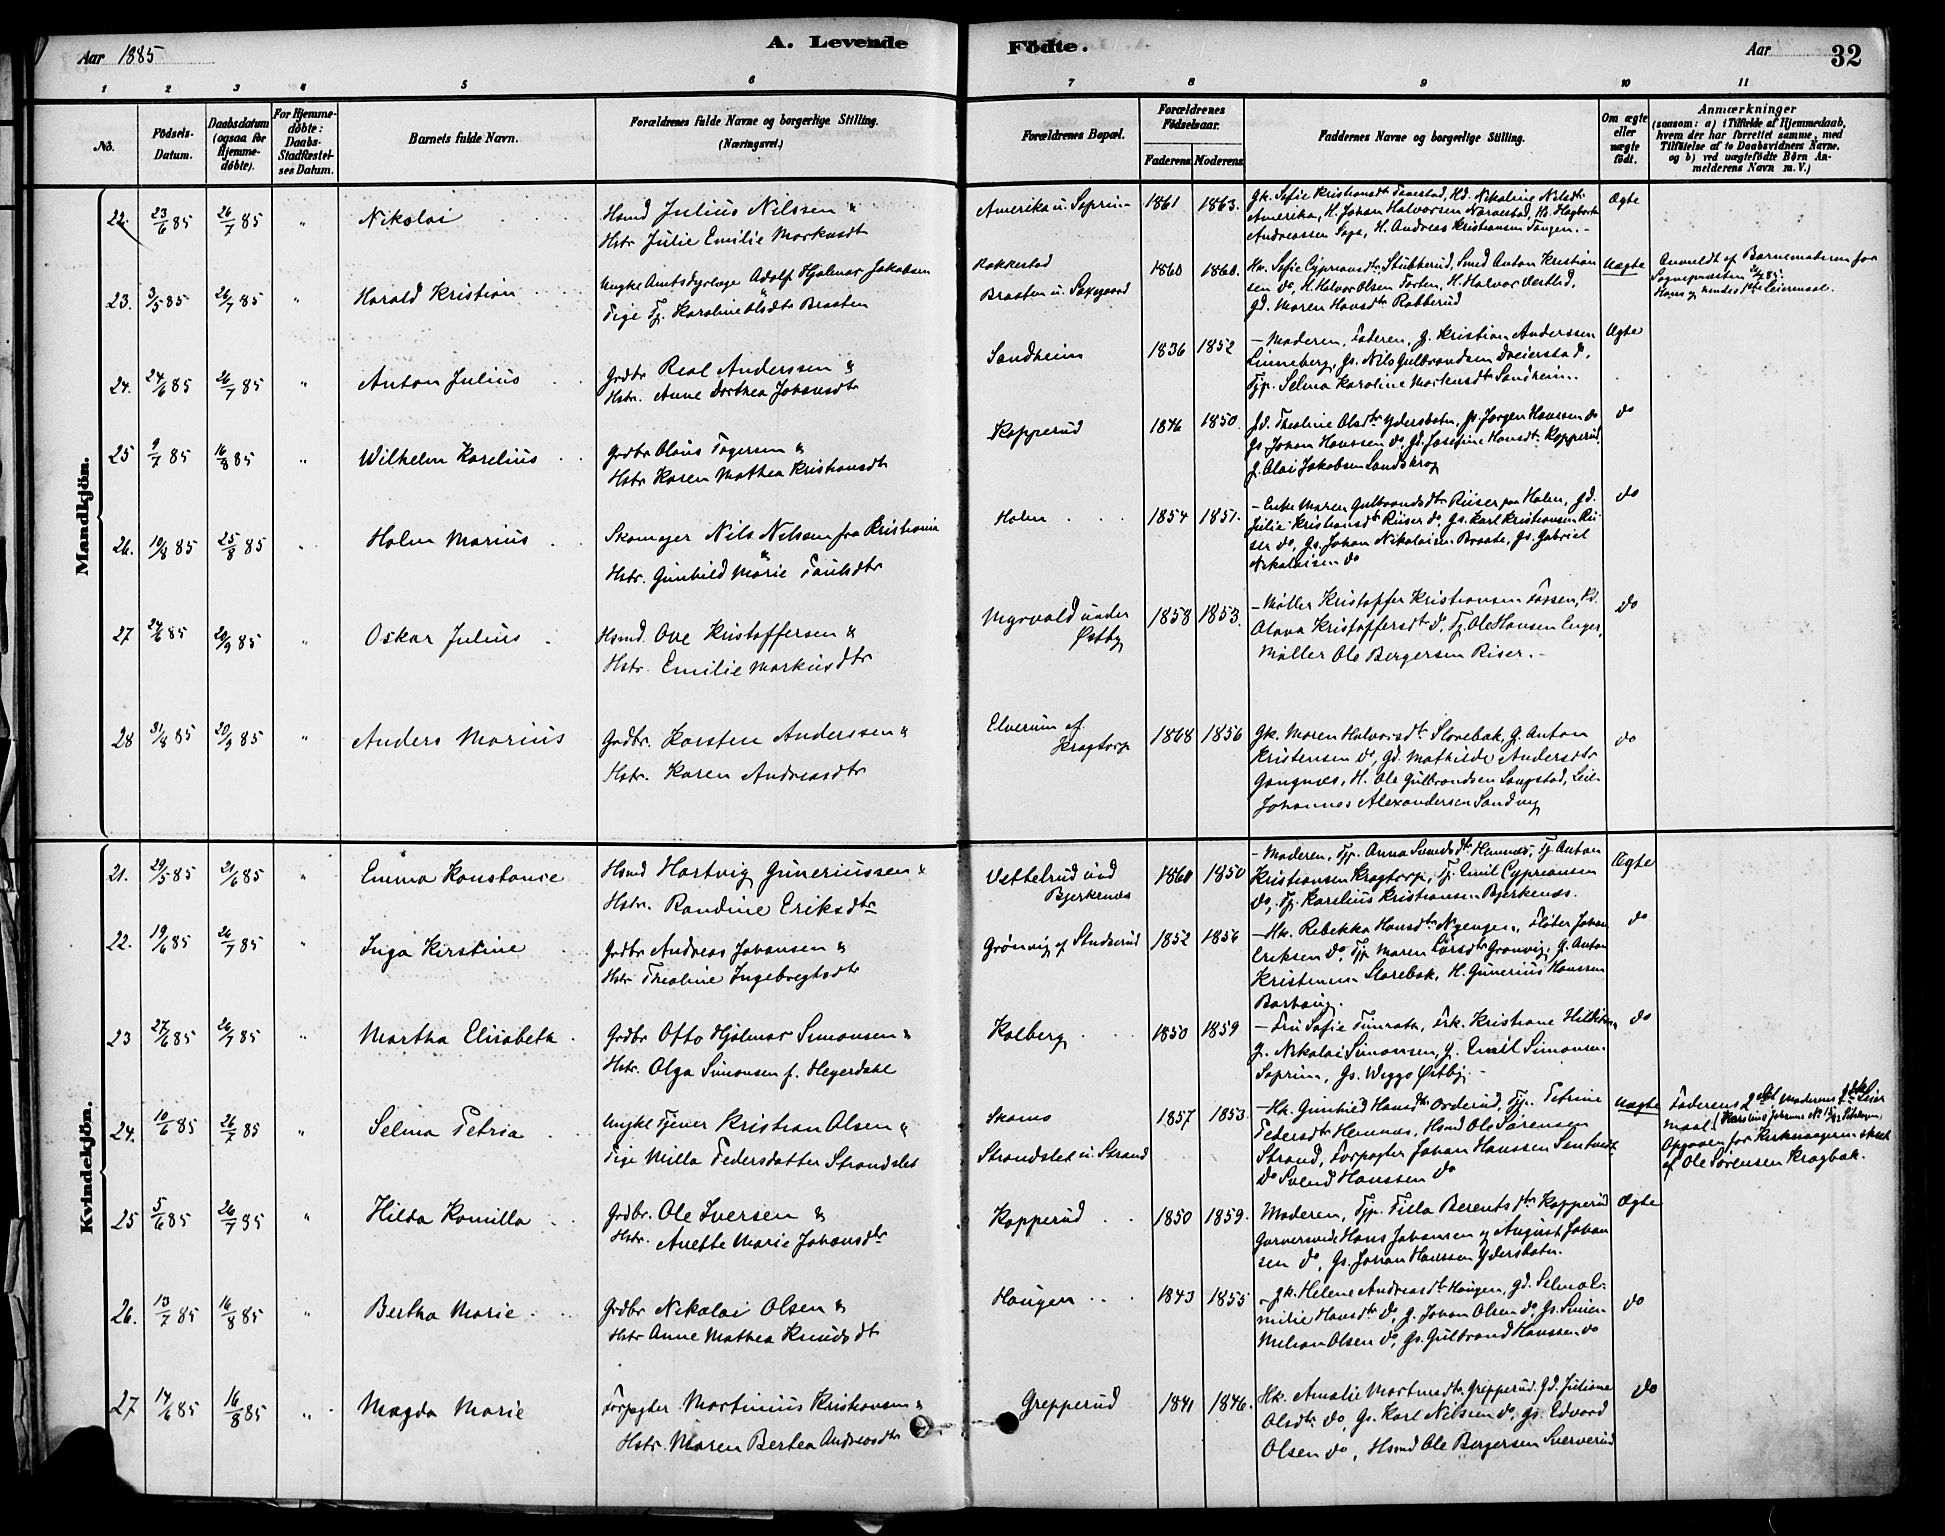 Aar 1885
A. Levende
Födte.
Aar
32
1 2 3 4 5 6 7 8 9 10 11
No.
Födsels-Datum.
Daabsdatum (ogsaa for Hjemme-döbte).
For Hjemme-döbte: Daabs-Stadfæstel-ses Datum.
Barnets fulde Navn.
Forældrenes fulde Navne og borgerlige Stilling.
(Næringsvei.)
Forældrenes Bopæl.
Forældrenes Födselsaar.
Faderens Moderens
Faddernes Navne og borgerlige Stilling.
Om ægte eller uægte födt.
Anmærkninger
(saasom: a) i Tilfælde af Hjemmedaab,
hvem der har forrettet samme, med
Tilföielse af to Daabsvidners Navne,
og b) ved uægtefödte Börn An-
melderens Navn m. V.)
Mandkjön.
22. 23/6 85 26/7 85 " Nikolai
Hsmd Julius Nilssen &
Hstr Julie Emilie Markusdt
Amerika u. Soprim 1861 1863.
Gk. Sofie Kristiansdt Taaestad, Hd. Nikoline Nilsdt
Amerika, H. Johan Halvorsen Naraestad, Hs. Hagbart
Andreassen Sage, H. Andreas Kristiansen Tangen. -
Ægte
23. 3/5 85 26/7 85 " Harald Kristian
Ungke Amtsdyrlæge Adolf Hjalmar Jakobsen
& Pige Tj. Karoline Olsdtr Braaten
Rakkestad
Braaten u. Saxegaard 1860 1860.
Hk. Sofie Cypriansdtr Stubberud, Smed Anton Kristian
sen do, H. Halvor Olsen Torten, H. Halvor Vestlid,
Gd. Maren Hansdtr Rabberud
Uægte
Anmeldt af Barnemoderen for
Sognepræsten
Hans og hendes 1ste Leiermaal.
24. 24/6 85 26/7 85 " Anton Julius
Grdbr Real Anderssen &
Hstr. Anne Dorthea Johansdtr
Sandheim 1836 1852
- Moderen, Faderen, G. Kristian Anderssen
Linneberg, Gs. Nils Gulbrandsen Dreierstad,
Tjp. Selma Karoline Martensdtr Sandheim.
Ægte
25 9/7 85 16/8 85 " Wilhelm Karelius
Grdbr Olaus Fagersen &
Hstr Karen Mathea Kristiansdt
Kopperud 1846 1850.
Gd. Theoline Olsdtr Ydersbotn, Gs. Jørgen Hanssen do
Gs. Johan Hanssen do, Gd. Josefine Hansdtr Kopperud,
G. Olai Jakobsen Landskrog
do
26. 10/8 85 25/8 85 " Holm Marius
Skomager Nils Nilssen fra Kristiania
& Hstr. Gunhild Marie Paulsdtr
Holm 1854 1851.
- Enke Maren Gulbrandsdtr Riiser paa Holm, Gd.
Julie Kristiansdt Riiser do, Gs. Karl Kristiansen Rii
ser do, Gs. Johan Nikolaisen Braate, Gs. Gabriel
Nikolaisen do
do
27 24/6 85 20/9 85 " Oskar Julius
Hsmd. Ove Kristoffersen &
Hstr. Emilie Markusdtr
Myrvold under
Østby 1858 1853.
- Møller Kristoffer Kristiansen Fossen, Hd.
Olava Kristoffersdt do, Tj. Ole Hansen Enger,
Møller Ole Bergersen Riser. -
do
28 31/8 85 20/9 85 " Anders Marius
Grdbr. Karsten Anderssen &
Hstr. Karen Andreasdtr
Elverum af
Kragtorp 1868 1856
Gk. Maren Halvorsdt Slorebak, G. Anton
Kristensen do, Gd. Mathilde Andersdtr
Gangnæs, H. Ole Gulbrandsen Langstad, Leil.
Johannes Alexandersen Sandvig
do
Kvindekjön.
21. 29/5 85 21/6 85 " Emma Konstance
Hsmd Hartvig Guneriussen &
Hstr. Randine Eriksdtr
Vettelrud ved
Bjerkenæs 1860 1850
- Moderen, Tjp. Anna Svendsdtr Hemnæs, Tj. Anton
Kristiansen Kragtorp, Tj. Emil Cypriansen
do, Tj. Karelius Kristiansen Bjerkenæs.
Ægte
22. 19/6 85 26/7 85 " Inga Kirstine
Grdbr Andreas Johansen &
Hstr Theoline Ingebregtsdtr
Grønvig af Studserud 1852 1856
- Hk. Rebekka Hansdtr Nyengen, Fløter Johan
Eriksen do, Tjp. Maren Larsdtr Grønvig, G. Anton
Kristensen Slorebak, H. Gunerius Hanssen
Barbaug.
do
23 27/6 85 26/7 85 " Martha Elisabeth
Grdbr Otto Hjalmar Simonsen &
Hstr. Olga Simonsen f. Heyerdahl
Kolberg 1850 1859
- Fru Sofie Simrata, Frk. Kristiane
G. Nikolai Simonsen, G. Emil Simonsen
Soprim, Gs. Wiggo Østby. -
do
24. 10/6 85 26/7 85 " Selma Petria
Ungke Tjener Kristian Olsen &
Pige Milla Pedersdatter Strandslet
Skams
Strandslet u. Strand 1857 1853.
- Hk. Gunhild Hansdtr Orderud, Tjp. Petrine
Pedersdtr Hemnæs, Hsmd Ole Sørensen
Strand, Forpagter Johan Hanssen
do Svend Hanssen do
Uægte
Faderens 2det Moderens 2det Leier
maal.
Opgaven for Kirkesangeren skeet
af Ole Sørensen Kragbak.
25 5/6 85 26/7 85 " Hilda Kamilla
Grdbr. Ole Iversen &
Hstr. Anette Marie Johansdtr
Kopperud 1850 1859.
Moderen, Tjp. Tilla Berentsdtr Kopperud
Garversvend Hans Johansen og August Johan
sen do, Gs. Johan Hanssen Ydersbotn.
Ægte
26. 13/7 85 16/8 85 " Bertha Marie
Grdbr Nikolai Olsen &
Hstr Anne Mathea Knudsdt
Haugen 1843 1855
- Gk. Helene Andreasdt Haugen, Gd. Selma E-
milie Hansdtr do, G. Johan Olsen do, Gs. Simen
Milian Olsen do, Gs. Gulbrand Hanssen do
do
27 14/6 85 16/8 85 " Magda Marie
Forpagter Martinius Kristiansen &
Hstr. Maren Berthea Andreasdtr
Grepperud 1841 1846.
Hk. Amalie Martinsdtr Gripperud, Gd. Juliane
Olsdtr do, Gs. Karl Nilssen do, Gs. Edvard
Olsen do, Hsmd Ole Bergersen Sververud
do